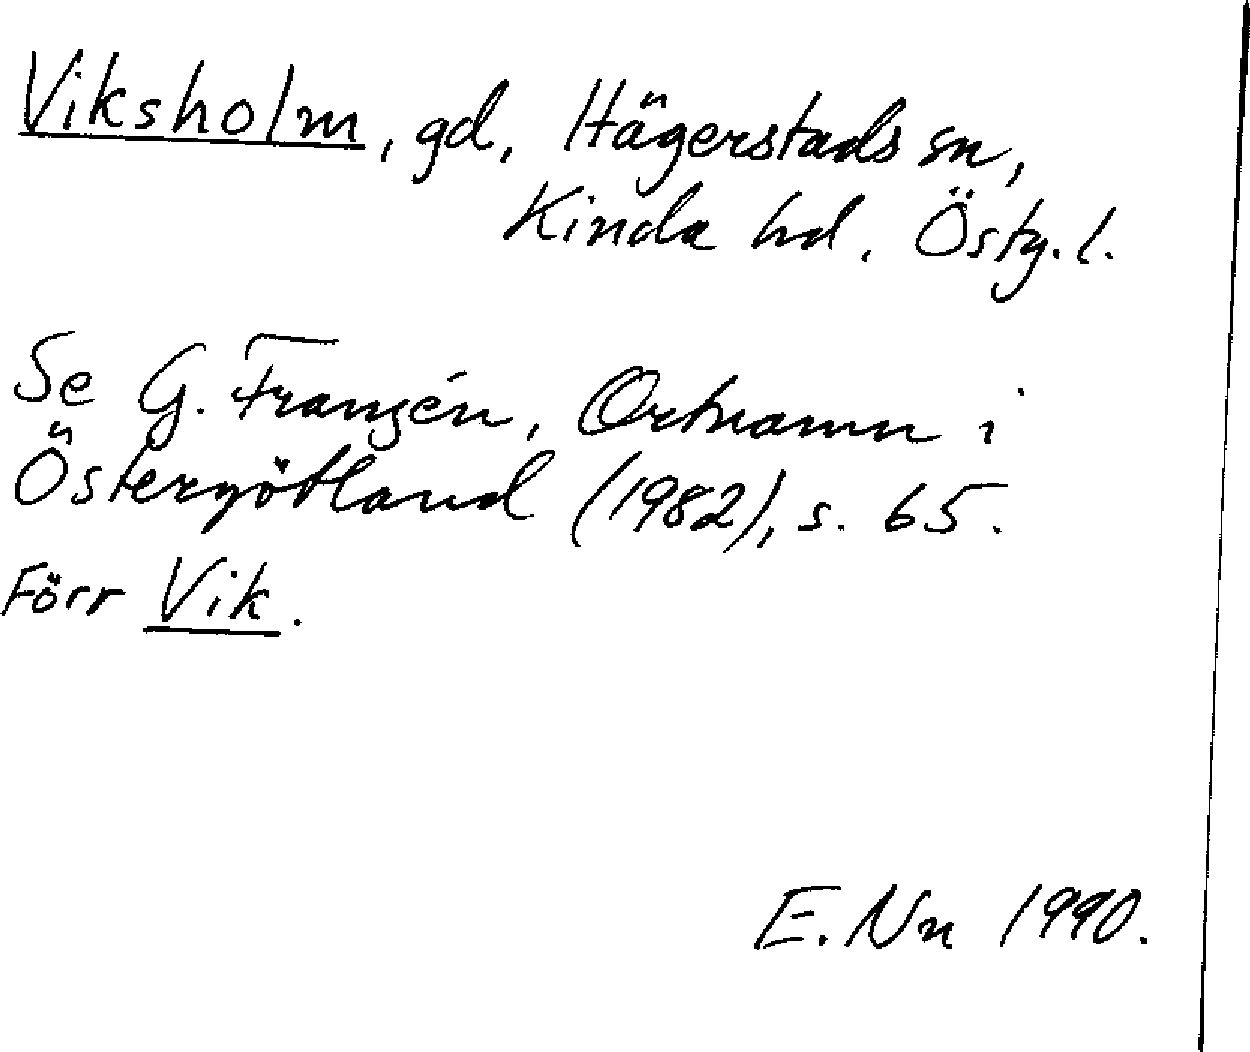 Viksholm, gd, Hägerstads sn,
Kinda hd. Östg.l.
Se G. Franzén, Ortnamn i
Östergötland (1982), s. 65.
Förr Vik.
E. Nn 1990.